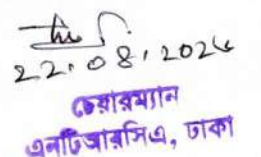 22.08.202৬
চেয়ারম্যান
এনটিআরসিএ, ঢাকা